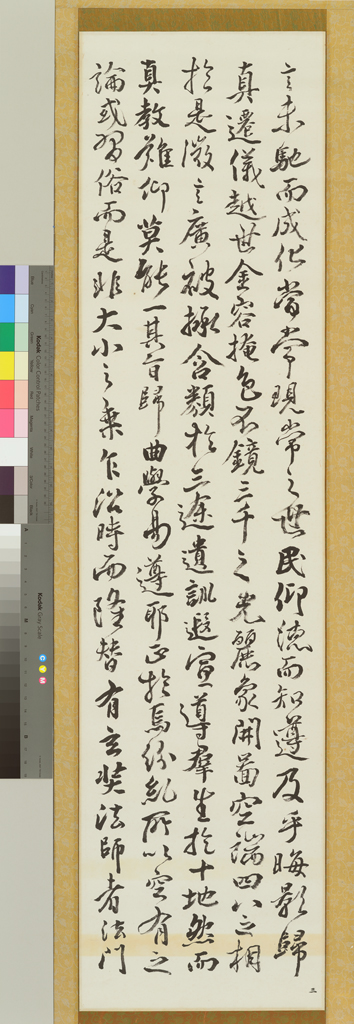 言未馳而成化當常現常之世民仰德而知遵及乎晦影歸
真遷儀越世金容掩色不鏡三千之光麗象開圖空端四八之相
於是微言廣被拯含類於三途遺訓遐宣導羣生於十地然而
真教難仰莫能一其旨歸曲學易遵邪正於焉紛糺所以空有之
論或習俗而是非大小之乘乍沿時而隆替有玄奘法師者法門
三
Kodak Color Control Patches
Kodak Gray Scale
C Y M